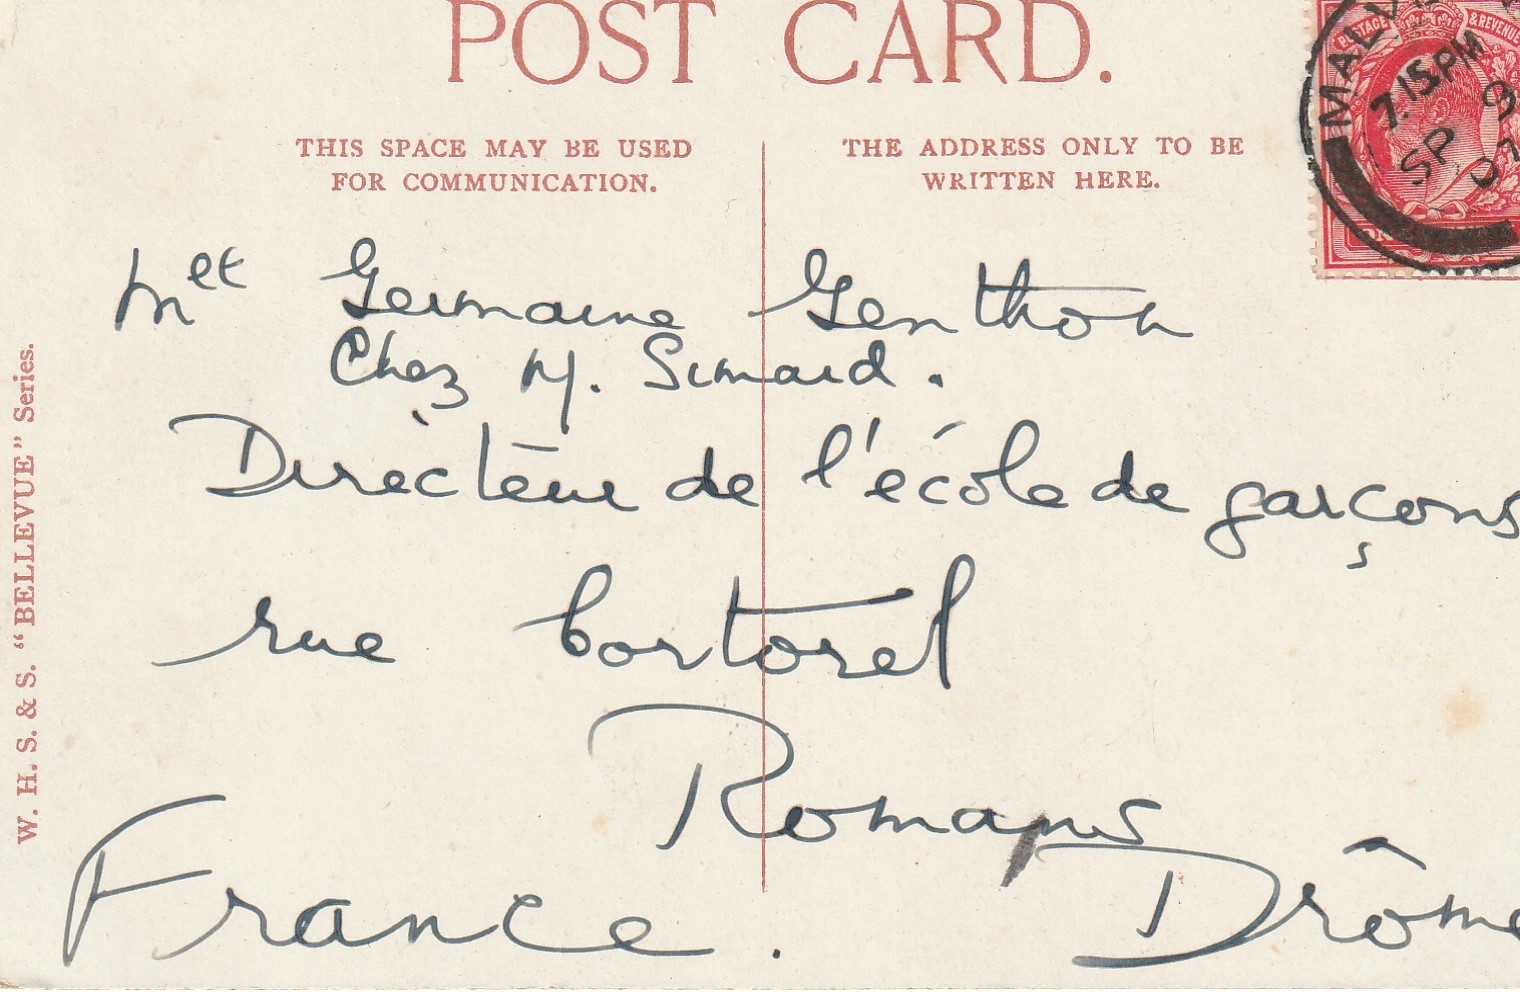 POST CARD.
THIS SPACE MAY BE USED
FOR COMMUNICATION.
THE ADDRESS ONLY TO BE
WRITTEN HERE.
POSTAGE & REVENUE
MALV
7.15 PM
SP 9
07
Mlle Germaine Genthon
Chez M. Simard.
Directeur de l'école de garçons
rue
Romans
Drôme
France.
W. H. S. & S. "BELLEVUE" Series.